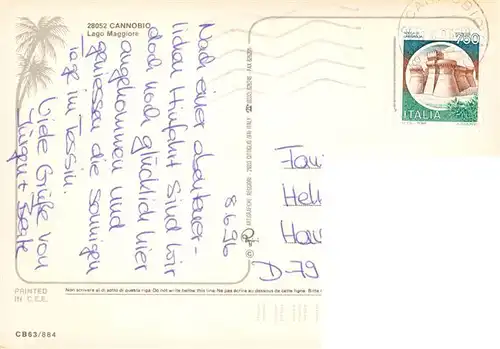 28052 CANNOBIO
Lago Maggiore
8.6.96
Nach einer abenteuer-
lichen Hinfahrt sind wir
doch noch glücklich hier
angekommen und
geniessen die sonnigen
Tage im Tessin.
Viele Grüße von
Jürgen + Beate
Fam
Hel
Hau
D-79
750
ITALIA
PRINTED
IN C.E.E.
Non scrivere al di sotto di questa riga. Do not write below this line. Ne pas écrire au-dessous de cette ligne.
CB63/884